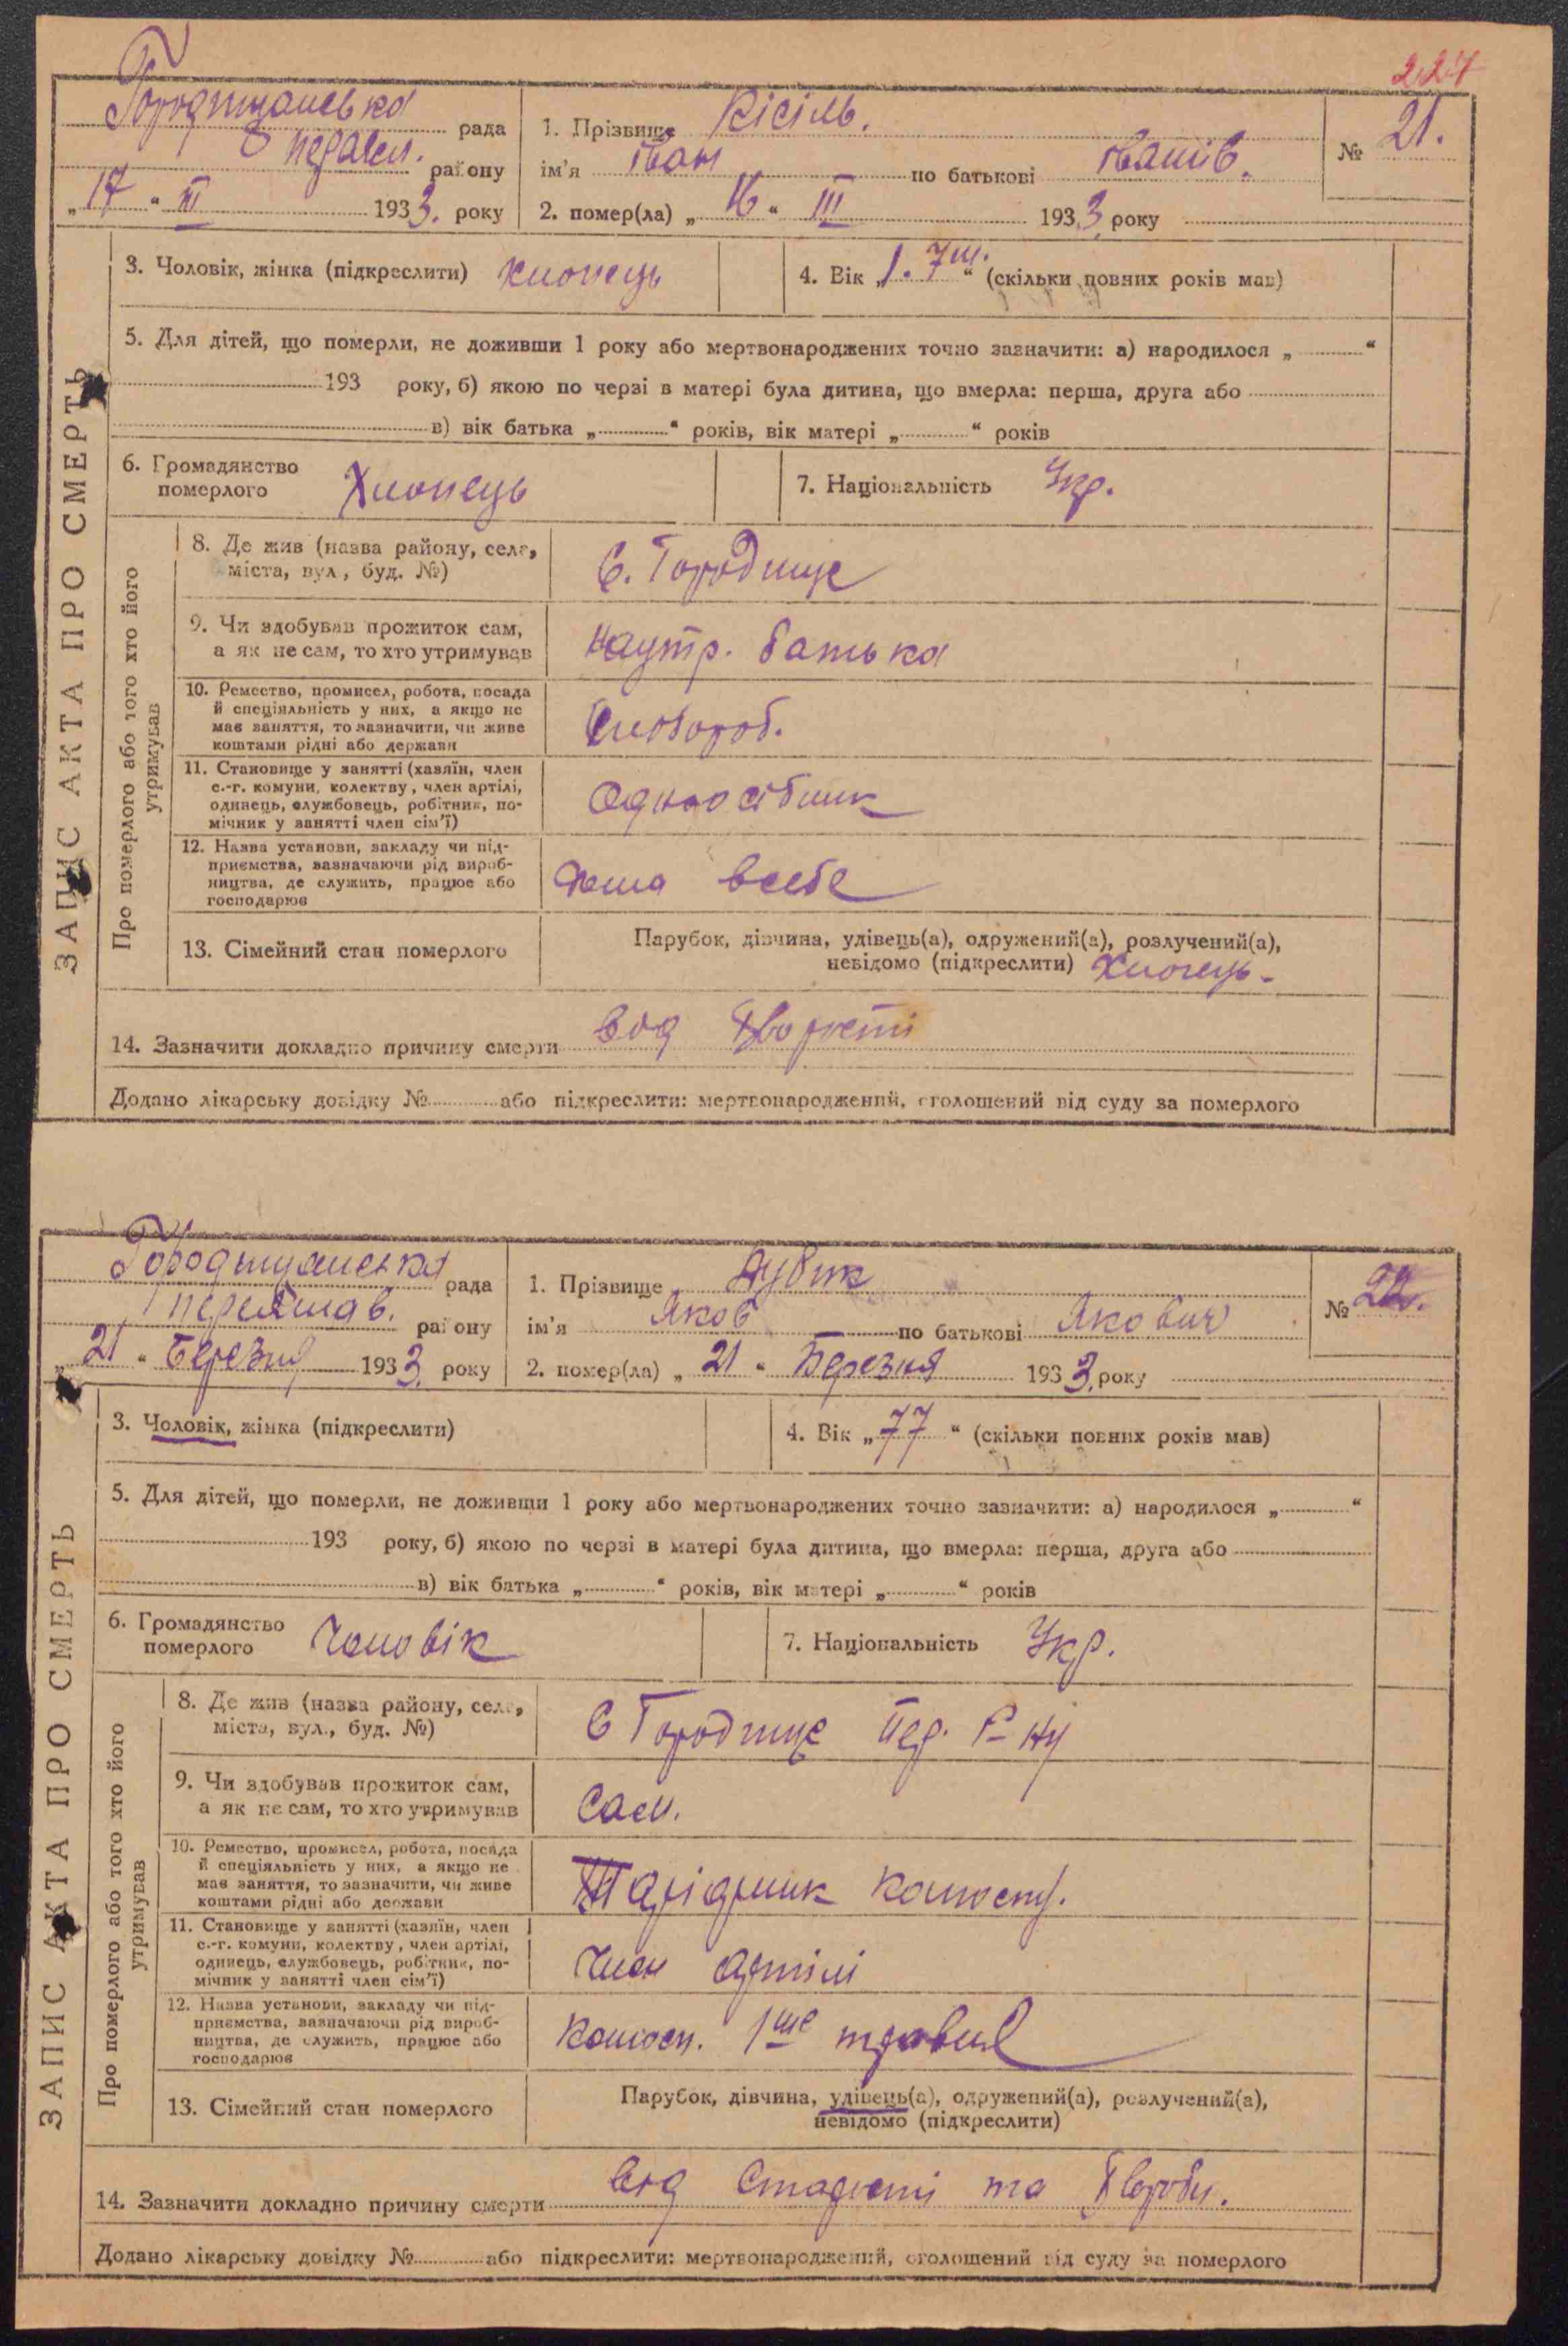 224
Городищанська рада
Переясл. району
„17“ III 1933. року
1. Прізвище Кісіль.
ім'я Іван по батькові Іванів.
2. помер(ла) „16“ III 1933 року
№ 21.
3. Чоловік, жінка (підкреслити) хлопець
4. Вік „1. 7 м.“ (скільки повних років мав)
5. Для дітей, що померли, не доживши 1 року або мертвонароджених точно зазначити: а) народилося „ “
193 року, б) якою по черзі в матері була дитина, що вмерла: перша, друга або
в) вік батька „ “ років, вік матері „ “ років
6. Громадянство
померлого Хлопець
7. Національність Укр.
ЗАПИС АКТА ПРО СМЕРТЬ
Про померлого або того хто його
утримував
8. Де жив (назва району, села,
міста, вул, буд. №)
С. Городище
9. Чи здобував прожиток сам,
а як не сам, то хто утримував
Наутр. батька
10. Ремество, промисел, робота, посада
й спеціяльність у них, а якщо не
має заняття, то зазначити, чи живе
коштами рідні або держави
11. Становище у занятті (хазяїн, член
с.-г. комуни, колектву, член артілі,
одинець, службовець, робітник, по-
мічник у занятті член сім'ї)
Одноосібник
12. Назва установи, закладу чи під-
приємства, зазначаючи рід вироб-
ництва, де служить, працює або
господарює
всебе
13. Сімейний стан померлого
Парубок, дівчина, удівець(а), одружений(а), розлучений(а),
невідомо (підкреслити) Хлопець.
14. Зазначити докладно причину смерти від
Додано лікарську довідку № або підкреслити: мертвонароджений, оголошений від суду за померлого
Городищанська рада
Переяслав. району
„21“ Березня 1933. року
1. Прізвище
ім'я Яков по батькові Якович
2. помер(ла) „21“ Березня 1933. року
№ 22.
3. Чоловік, жінка (підкреслити)
4. Вік „77“ (скільки повних років мав)
5. Для дітей, що померли, не доживши 1 року або мертвонароджених точно зазначити: а) народилося „ “
193 року, б) якою по черзі в матері була дитина, що вмерла: перша, друга або
в) вік батька „ “ років, вік матері „ “ років
6. Громадянство
померлого Чоловік
7. Національність Укр.
ЗАПИС АКТА ПРО СМЕРТЬ
Про померлого або того хто його
утримував
8. Де жив (назва району, села,
міста, вул., буд. №)
С Городище Пер. Р-ну
9. Чи здобував прожиток сам,
а як не сам, то хто утримував
Сам.
10. Ремество, промисел, робота, посада
й спеціяльність у них, а якщо не
має заняття, то зазначити, чи живе
коштами рідні або держави
11. Становище у занятті (хазяїн, член
с.-г. комуни, колектву, член артілі,
одинець, службовець, робітник, по-
мічник у занятті член сім'ї)
Член артілі
12. Назва установи, закладу чи під-
приємства, зазначаючи рід вироб-
ництва, де служить, працює або
господарює
Колгосп. 1ше травня
13. Сімейний стан померлого
Парубок, дівчина, удівець(а), одружений(а), розлучений(а),
невідомо (підкреслити)
14. Зазначити докладно причину смерти від Старости та
Додано лікарську довідку № або підкреслити: мертвонароджений, оголошений від суду за померлого